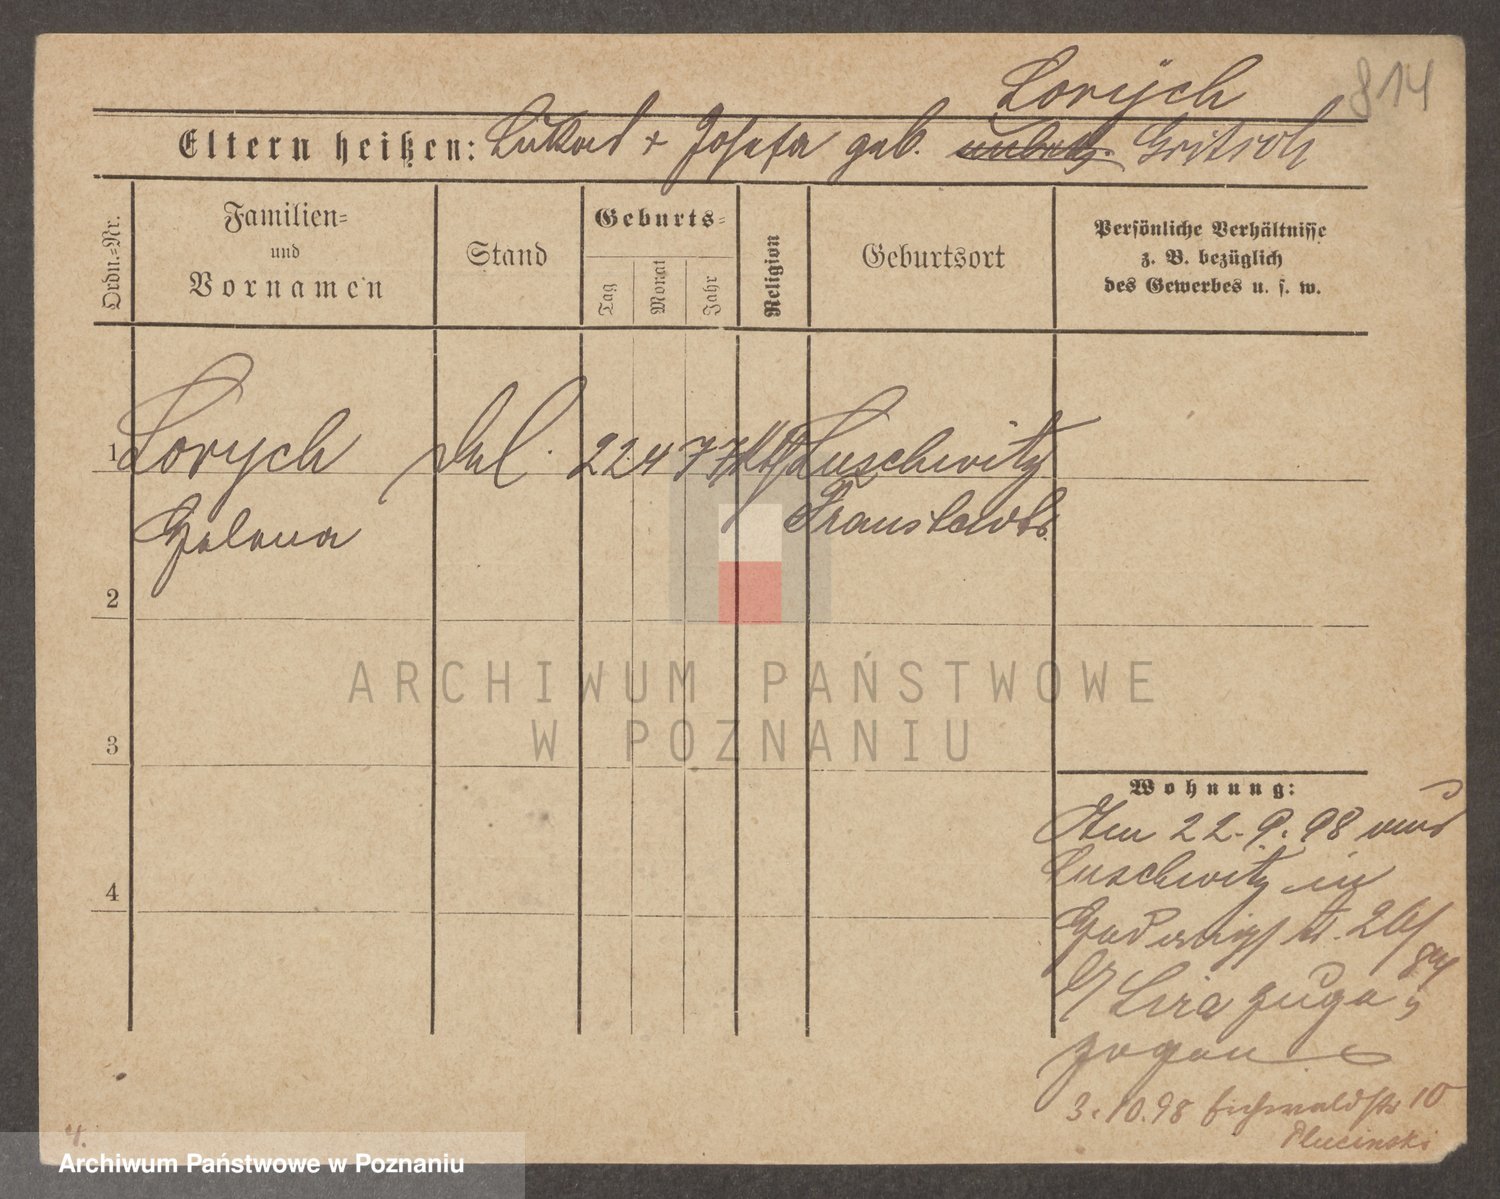 814
Lorÿch
Eltern heißen: Lukas + Josefa geb. Gritroh
Ordn.=Nr.
Familien=
und
Vornamen
Stand
Geburts=
Tag
Monat
Jahr
Religion
Geburtsort
Persönliche Verhältnisse
z. B. bezüglich
des Gewerbes u. s. w.
1 Lorych 22 4 77 Kth Luschwitz
Helena Fraustadt
2
3
4
Wohnung:
Am 22.9.98 aus
Luschwitz in
Hedwigstr. 20/
b/ Lira zuge
zogen
3.10.98 Eichwaldstr 10
Plucinski
4.
ARCHIWUM PAŃSTWOWE
W POZNANIU
Archiwum Państwowe w Poznaniu